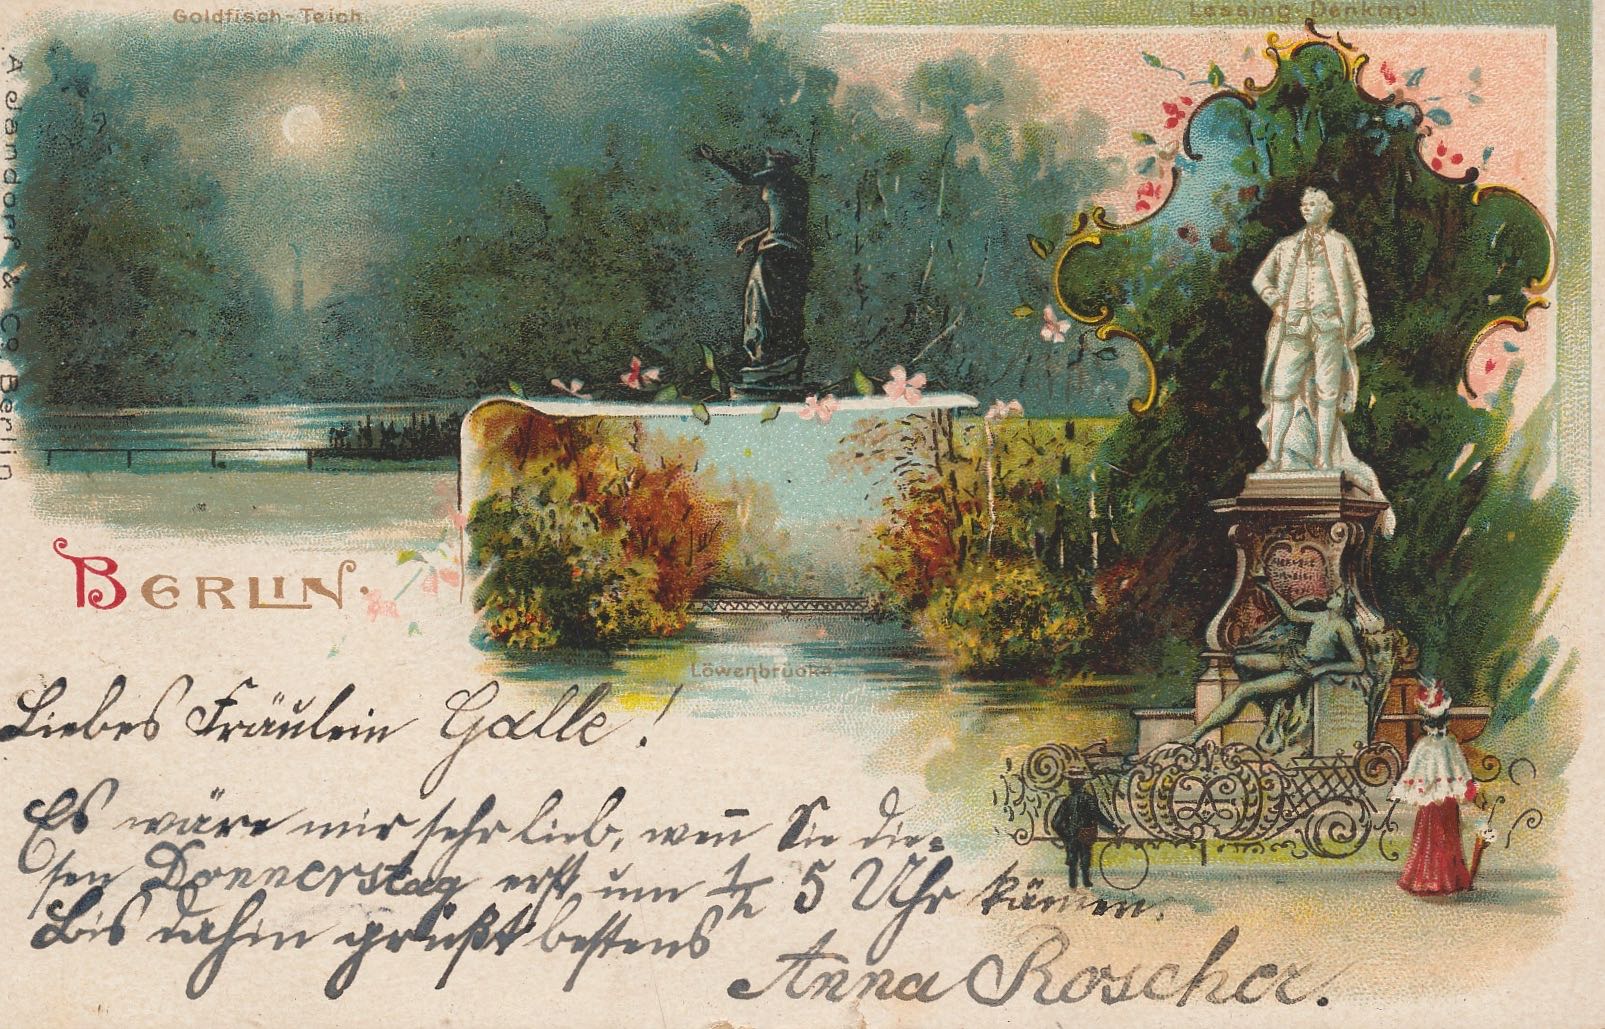 Goldfisch-Teich.
Lessing Denkmal.
A. Jandorf & Co Berlin
BERLIN.
Löwenbrücke
Liebes Fräulein Galle!
Es wäre mir sehr lieb, wen̄ Sie die=
sen Donnerstag erst um 1/2 5 Uhr kämen.
Bis dahin grüßt bestens
Anna Roscher.